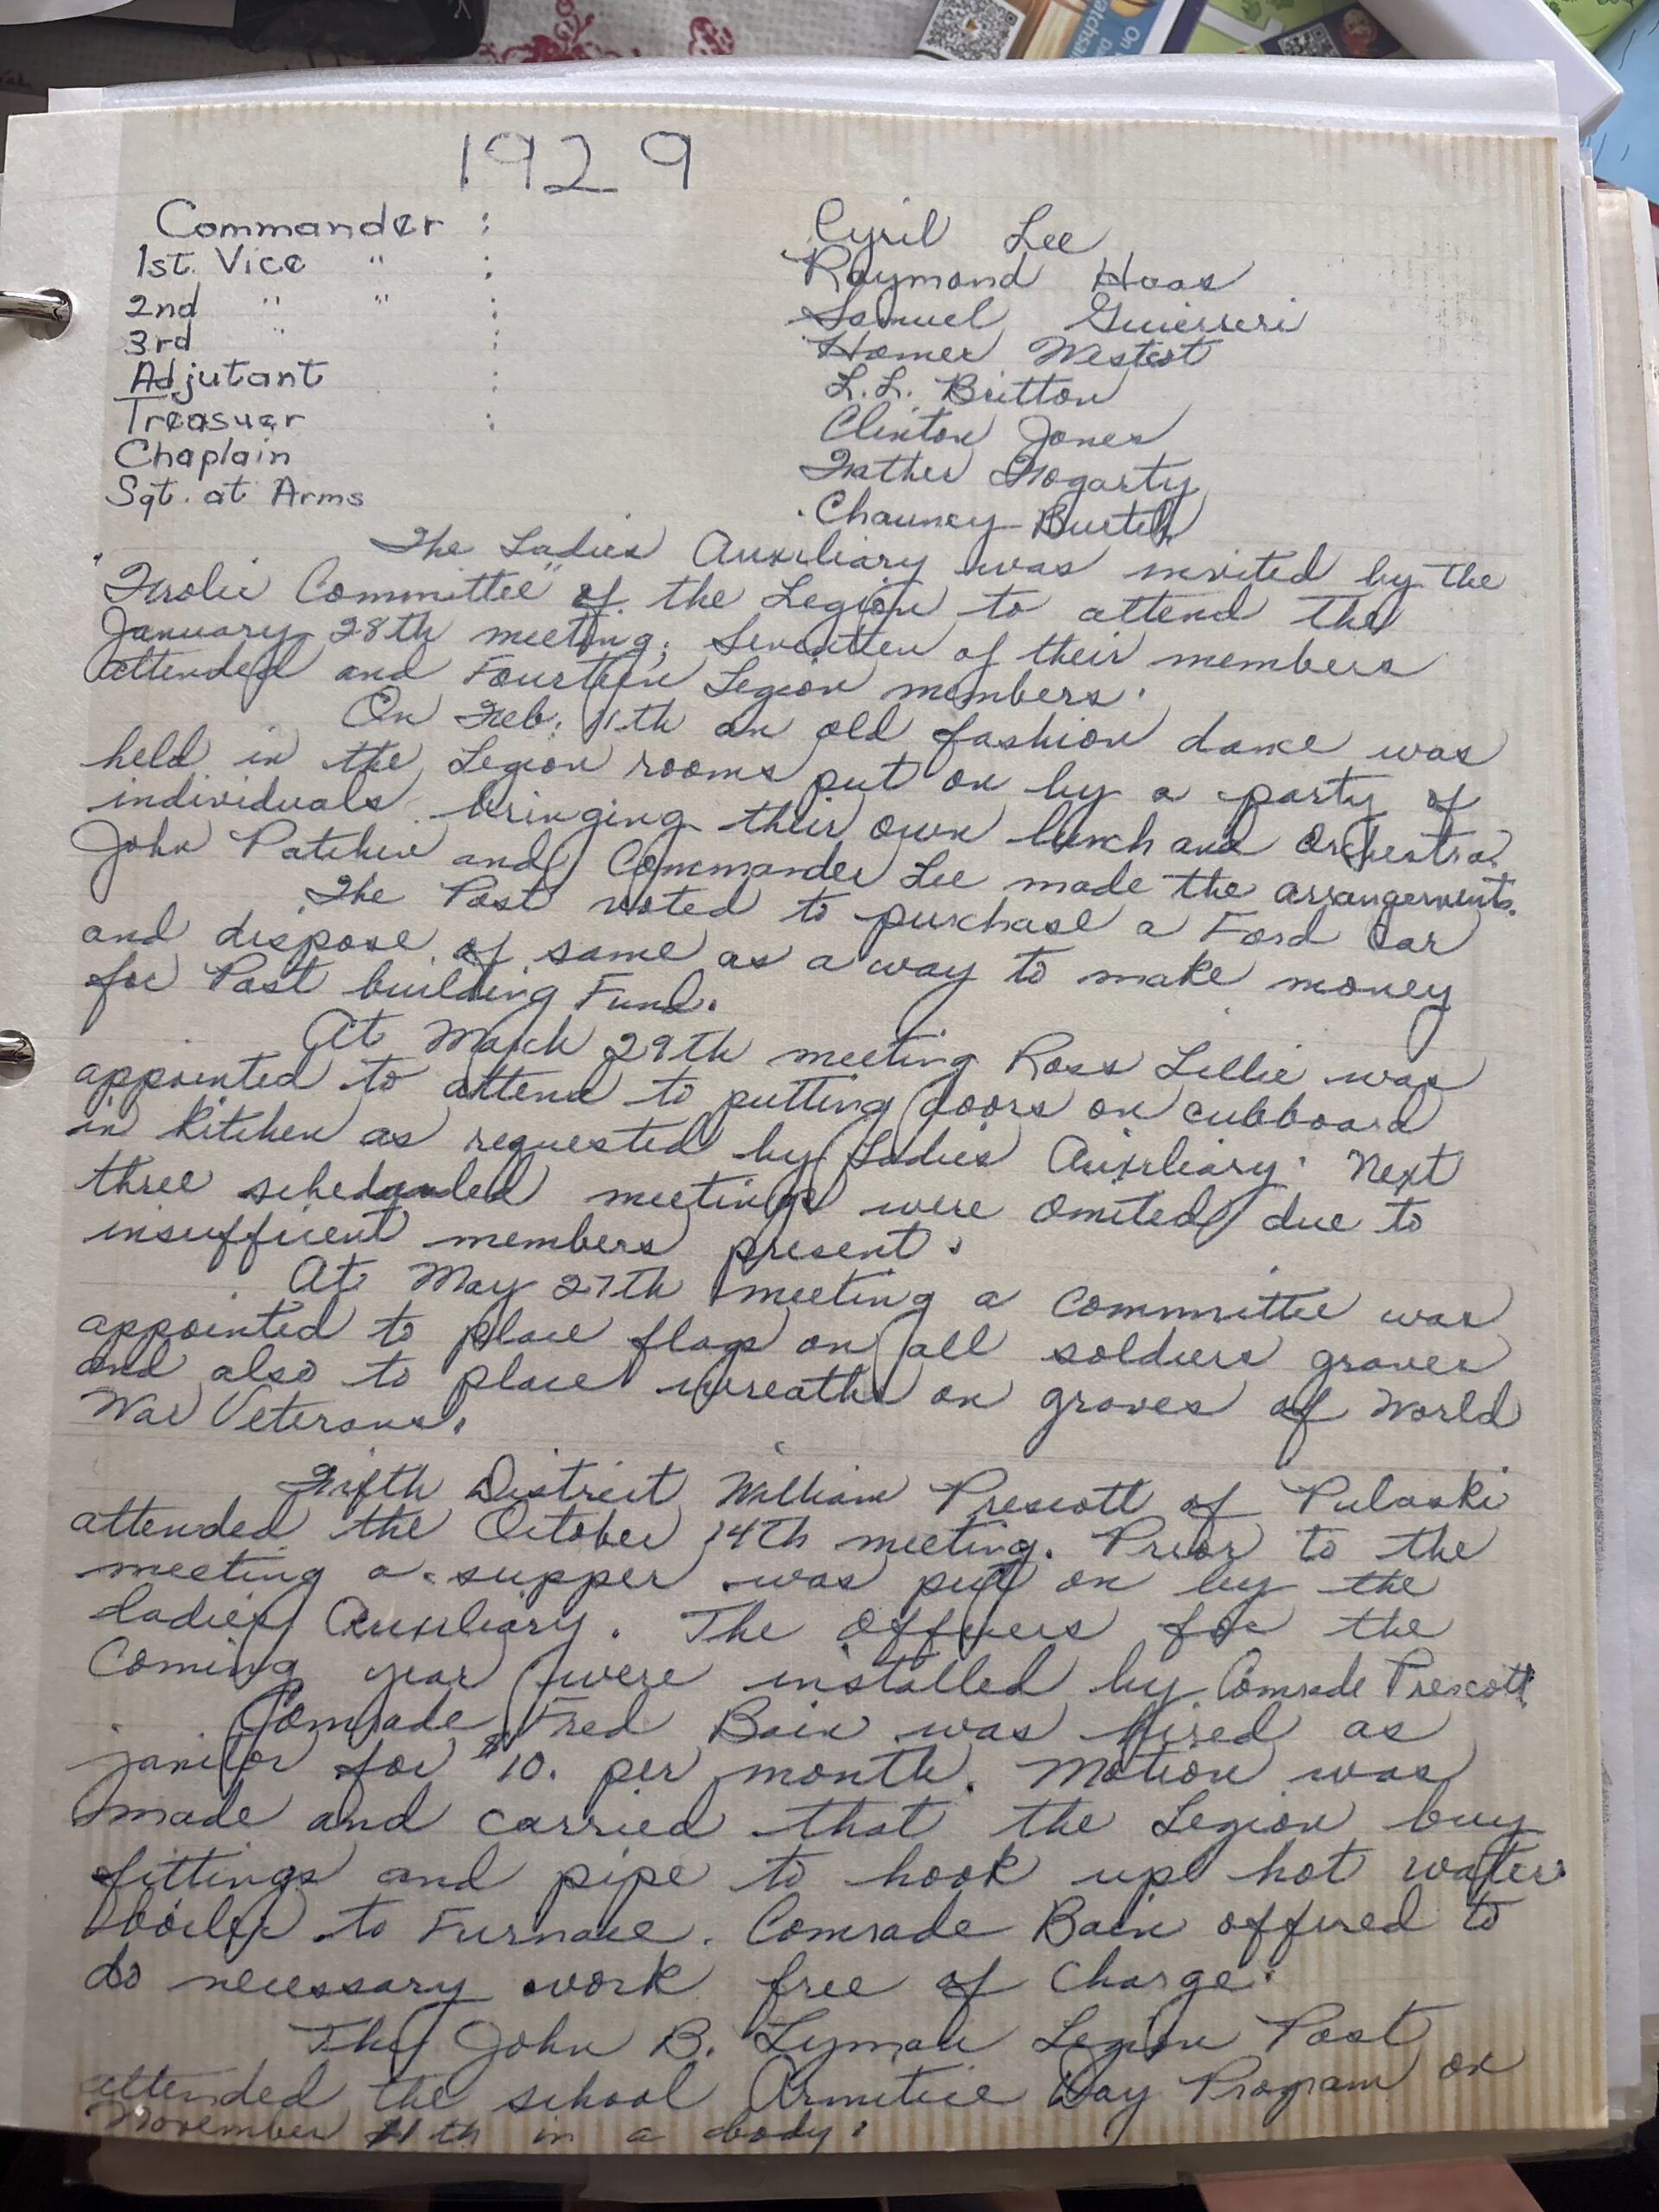 1929
Commander : Cyril Lee
1st. Vice " : Raymond Haas
2nd " " : Samuel Guierreri
3rd " : Homer Westcot
Adjutant : L.L. Britton
Treasuer : Clinton Jones
Chaplain Father Fogarty
Sgt. at Arms Chauncy
The Ladies Auxiliary was invited by the
"Frolic Committee" of the Legion to attend the
January 28th meeting; Seventeen of their members
attended and Fourteen Legion members.
On Feb. 11th an old fashion dance was
held in the Legion rooms put on by a party of
individuals bringing their own lunch and Orchestra.
John Patchin and Commander Lee made the arrangements.
The Post voted to purchase a Ford Car
and dispose of same as a way to make money
for Post building Fund.
At March 29th meeting Ross Lillie was
appointed to attend to putting doors on cubboard
in Kitchen as requested by Ladies Auxiliary. Next
three scheduled meetings were Omited due to
insufficient members present.
At May 27th meeting a Committee was
appointed to place flags on all soldiers graves
and also to place wreaths on graves of World
War Veterans.
Fifth District William Prescott of Pulaski
attended the October 14th meeting. Prior to the
meeting a supper was put on by the
ladies Auxiliary. The Officers for the
Coming year were installed by Comrade Prescott
Comrade Fred Bain was hired as
janitor for $10. per month. Motion was
made and carried that the Legion buy
fittings and pipe to hook up hot water
boiler to Furnace. Comrade Bain offered to
do necessary work free of Charge.
The John B. Lyman Legion Post
attended the school Armitice Day Program on
November 11th in a body.